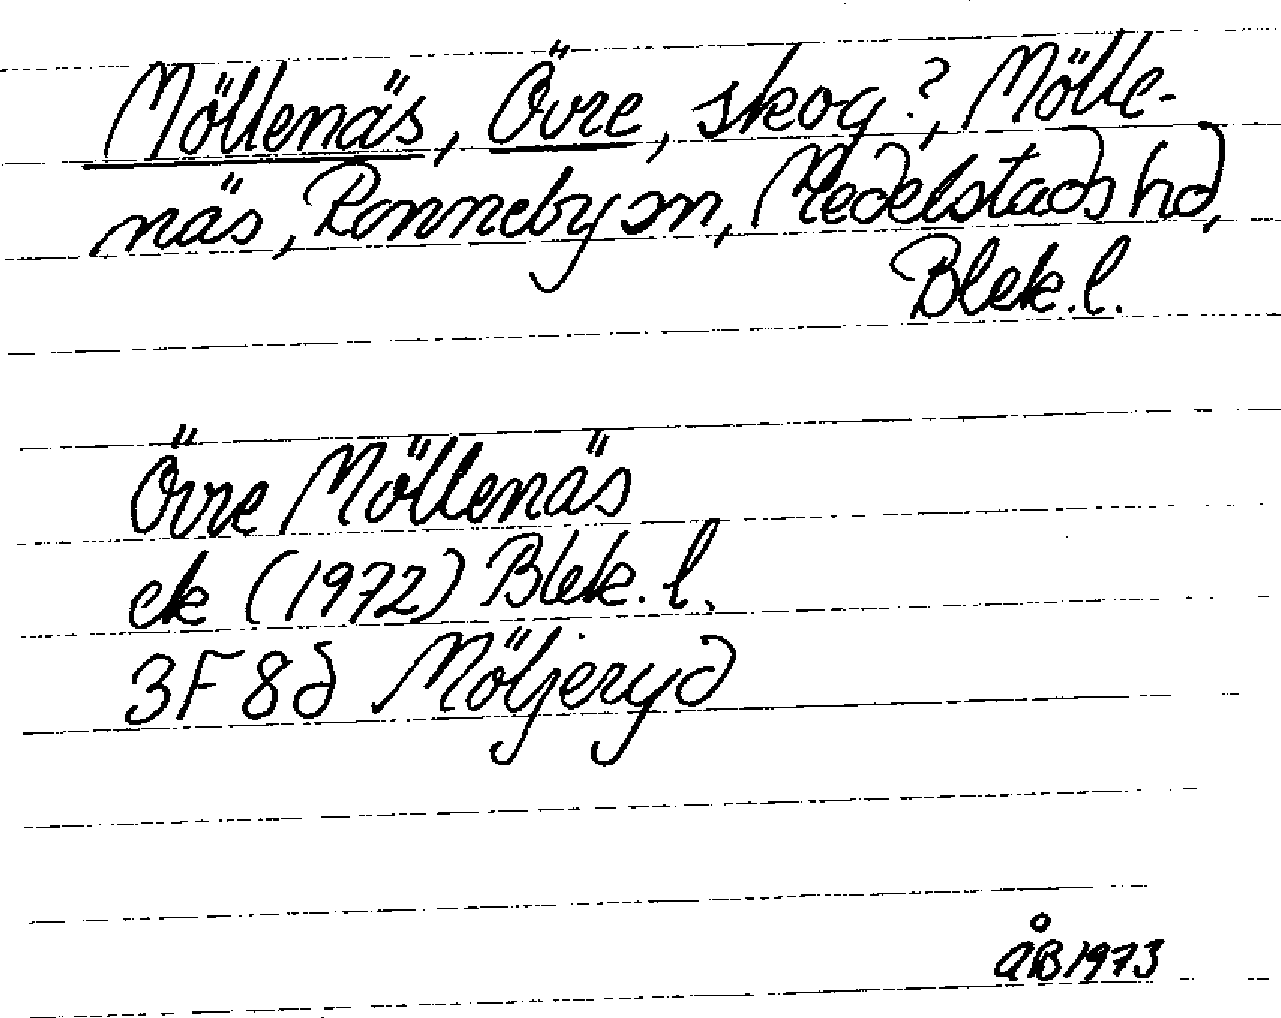 Möllenäs, Övre, skog?, Mölle-
näs, Ronneby sn, Medelstads hd,
Blek. l.
Övre Möllenäs
ek (1972) Blek. l.
3F 8d Möljeryd
åB 1973